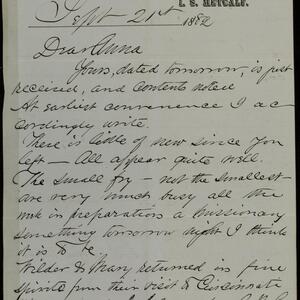 I. S. METCALF.
Sept 21st 1882
Dear Anna
Yours, dated tomorrow, is just
received, and contents noted
At earliest convenience I ac
cordingly write.
There is little of new since you
left – All appear quite well.
The small fry – not the smallest
are very much busy all the
week in preparation a missionary
something tomorrow night I think
it is to be.
Wilder & Mary returned in fine
spirits from their visit to Cincinnati